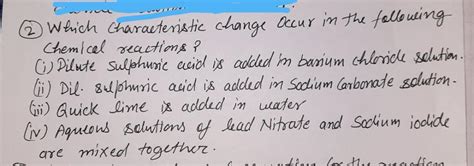 ② Which Characteristic change Occur in the following
Chemical reactions?
(i) Dilute Sulphuric acid is added in barium chloride solution.
(ii) Dil. sulphuric acid is added in Sodium Carbonate solution.
(iii) Quick lime is added in water
(iv) Aqueous solutions of lead Nitrate and Sodium iodide
are mixed together.